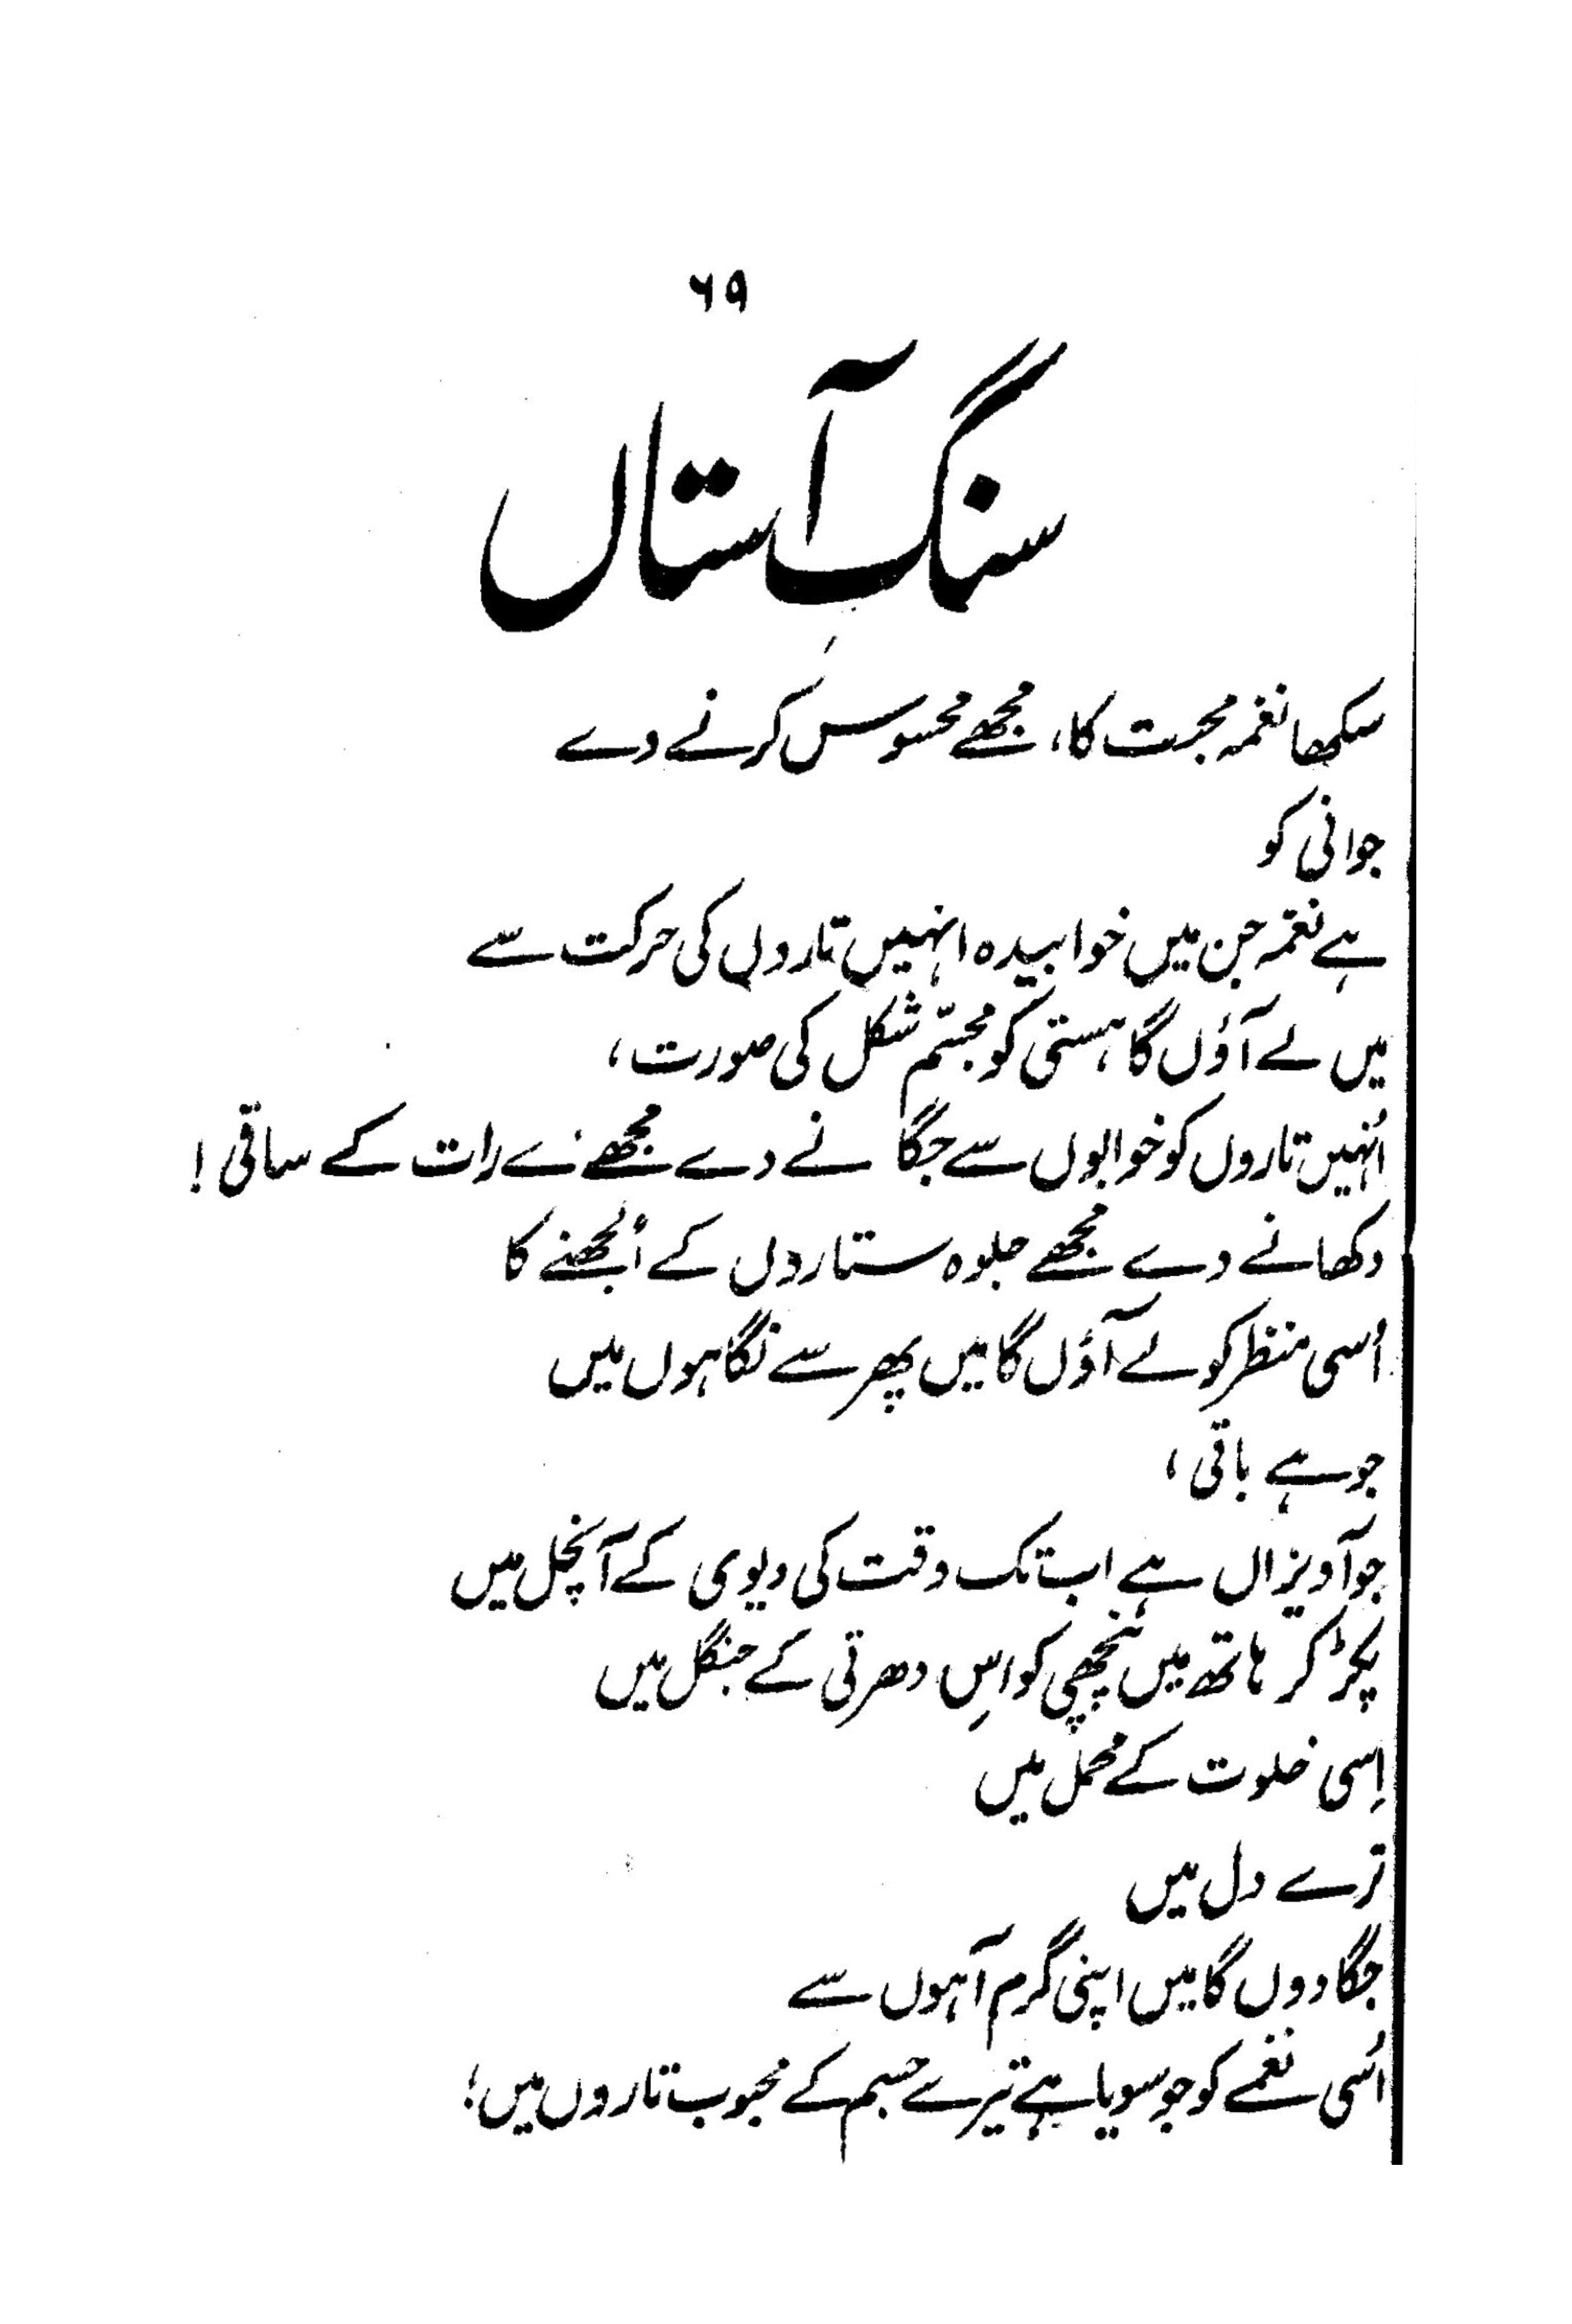 ۶۹
سنگ آستاں
سکھا نغمہ محبت کا، مجھے محسوس کرنے دے
جوانی کو
ہے نغمہ جن میں خوابیدہ انہیں تاروں کی حرکت سے
میں لے آؤں گا ہستی کو مجسّم شکل کی صورت،
انُہیں تاروں کو خوابوں سے جگانے دے مجھے اے رات کے ساقی!
دکھانے دے مجھے جلوہ ستاروں کے اُلجھنے کا
اُسی منظر کو لے آؤں گا میں پھر سے نگاہوں میں
جو ہے باقی،
جو آویزاں ہے اب تک وقت کی دیوی کے آنچل میں
پکڑ کر ہاتھ میں پنچھی کو اِس دھرتی کے جنگل میں
اِسی خلوت کے محمل میں
ترے دل میں
جگا دوں گا میں اپنی گرم آہوں سے
اُسی نغمے کو جو سویا ہے تیرے جسم کے محبوب تاروں میں؛